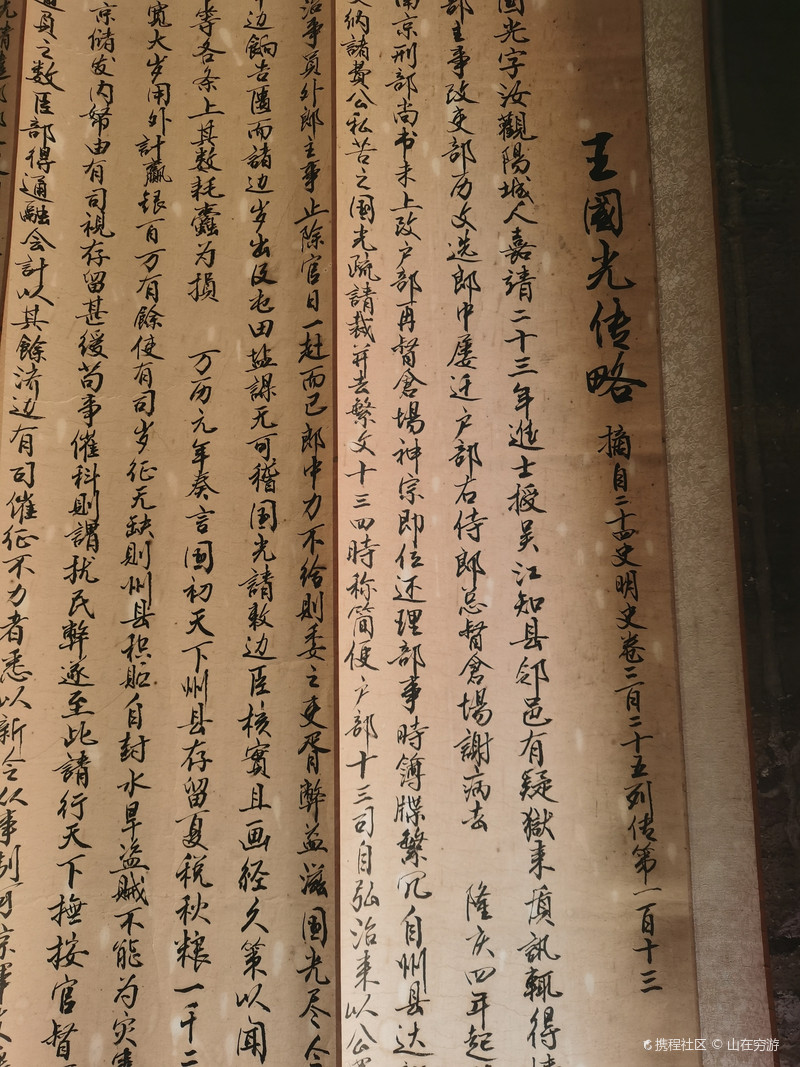 王國光传略 摘自二十四史明史卷二百二十五列传第一百十三
国光字汝觀陽城人嘉靖二十三年進士授吴江知县邻邑有疑獄来質訊輒得情
部主事改吏部历文选郎中屡迁户部右侍郎总督倉場謝病去 隆庆四年起
南京刑部尚书未上改户部再督倉場神宗即位还理部事時簿牒繁冗自州县达
纳諸費公私苦之国光疏請裁并去繁文十三四時称简便户部十三司自弘治来以公
治事員外郎主事止除官日一赴而已郎中力不给則委之吏胥弊益滋国光尽令
边餉告匮而諸边岁出及屯田盐課无可稽国光請敕边臣核實且画经久策以闻
等各条上其数耗蠹为損 万历元年奏言国初天下州县存留夏税秋粮一千二
宽大岁用外計贏银百万有餘使有司岁征无缺則州县积貯自封水旱盜贼不能为灾
京储发内帑由有司視存留甚缓苟事催科則謂扰民弊遂至此請行天下撫按官督
員之数臣部得通融会計以其餘济边有司催征不力者悉以新令从事制可京軍
携程社区 © 山在穷游